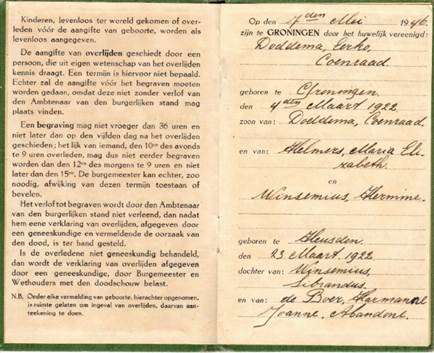 Kinderen, levenloos ter wereld gekomen of over-
leden vóór de aangifte van geboorte, worden als
levenloos aangegeven.
De aangifte van overlijden geschiedt door een
persoon, die uit eigen wetenschap van het overlijden
kennis draagt. Een termijn is hiervoor niet bepaald.
Echter zal de aangifte vóór het begraven moeten
worden gedaan, omdat deze niet zonder verlof van
den Ambtenaar van den burgerlijken stand mag
plaats vinden.
Een begraving mag niet vroeger dan 36 uren en
niet later dan op den vijfden dag na het overlijden
geschieden; het lijk van iemand, den 10den des avonds
te 9 uren overleden, mag dus niet eerder begraven
worden dan den 12den des morgens te 9 uren en niet
later dan den 15den. De burgemeester kan echter, zoo
noodig, afwijking van dezen termijn toestaan of
bevelen.
Het verlof tot begraven wordt door den Ambtenaar
van den burgerlijken stand niet verleend, dan nadat
hem eene verklaring van overlijden, afgegeven door
een geneeskundige en vermeldende de oorzaak van
den dood, is ter hand gesteld.
Is de overledene niet geneeskundig behandeld,
dan wordt de verklaring van overlijden afgegeven
door een geneeskundige, door Burgemeester en
Wethouders met den doodschouw belast.
N.B. Onder elke vermelding van geboorte, hierachter opgenomen,
is ruimte gelaten om ingeval van overlijden, daarvan aan-
teekening te doen.
Op den 7den Mei 1946.
zijn te GRONINGEN door het huwelijk vereenigd:
Doddema, Eerko,
Coenraad.
geboren te Groningen
den 4den Maart 1922
zoon van: Doddema, Coenraad.
en van: Helmers, Maria Eli-
zabeth.
en
Winsemius, Hermine.
geboren te Heusden
den 23 Maart 1922
dochter van: Winsemius,
Sibrandus.
en van: de Boer, Harmanna
Joanne,